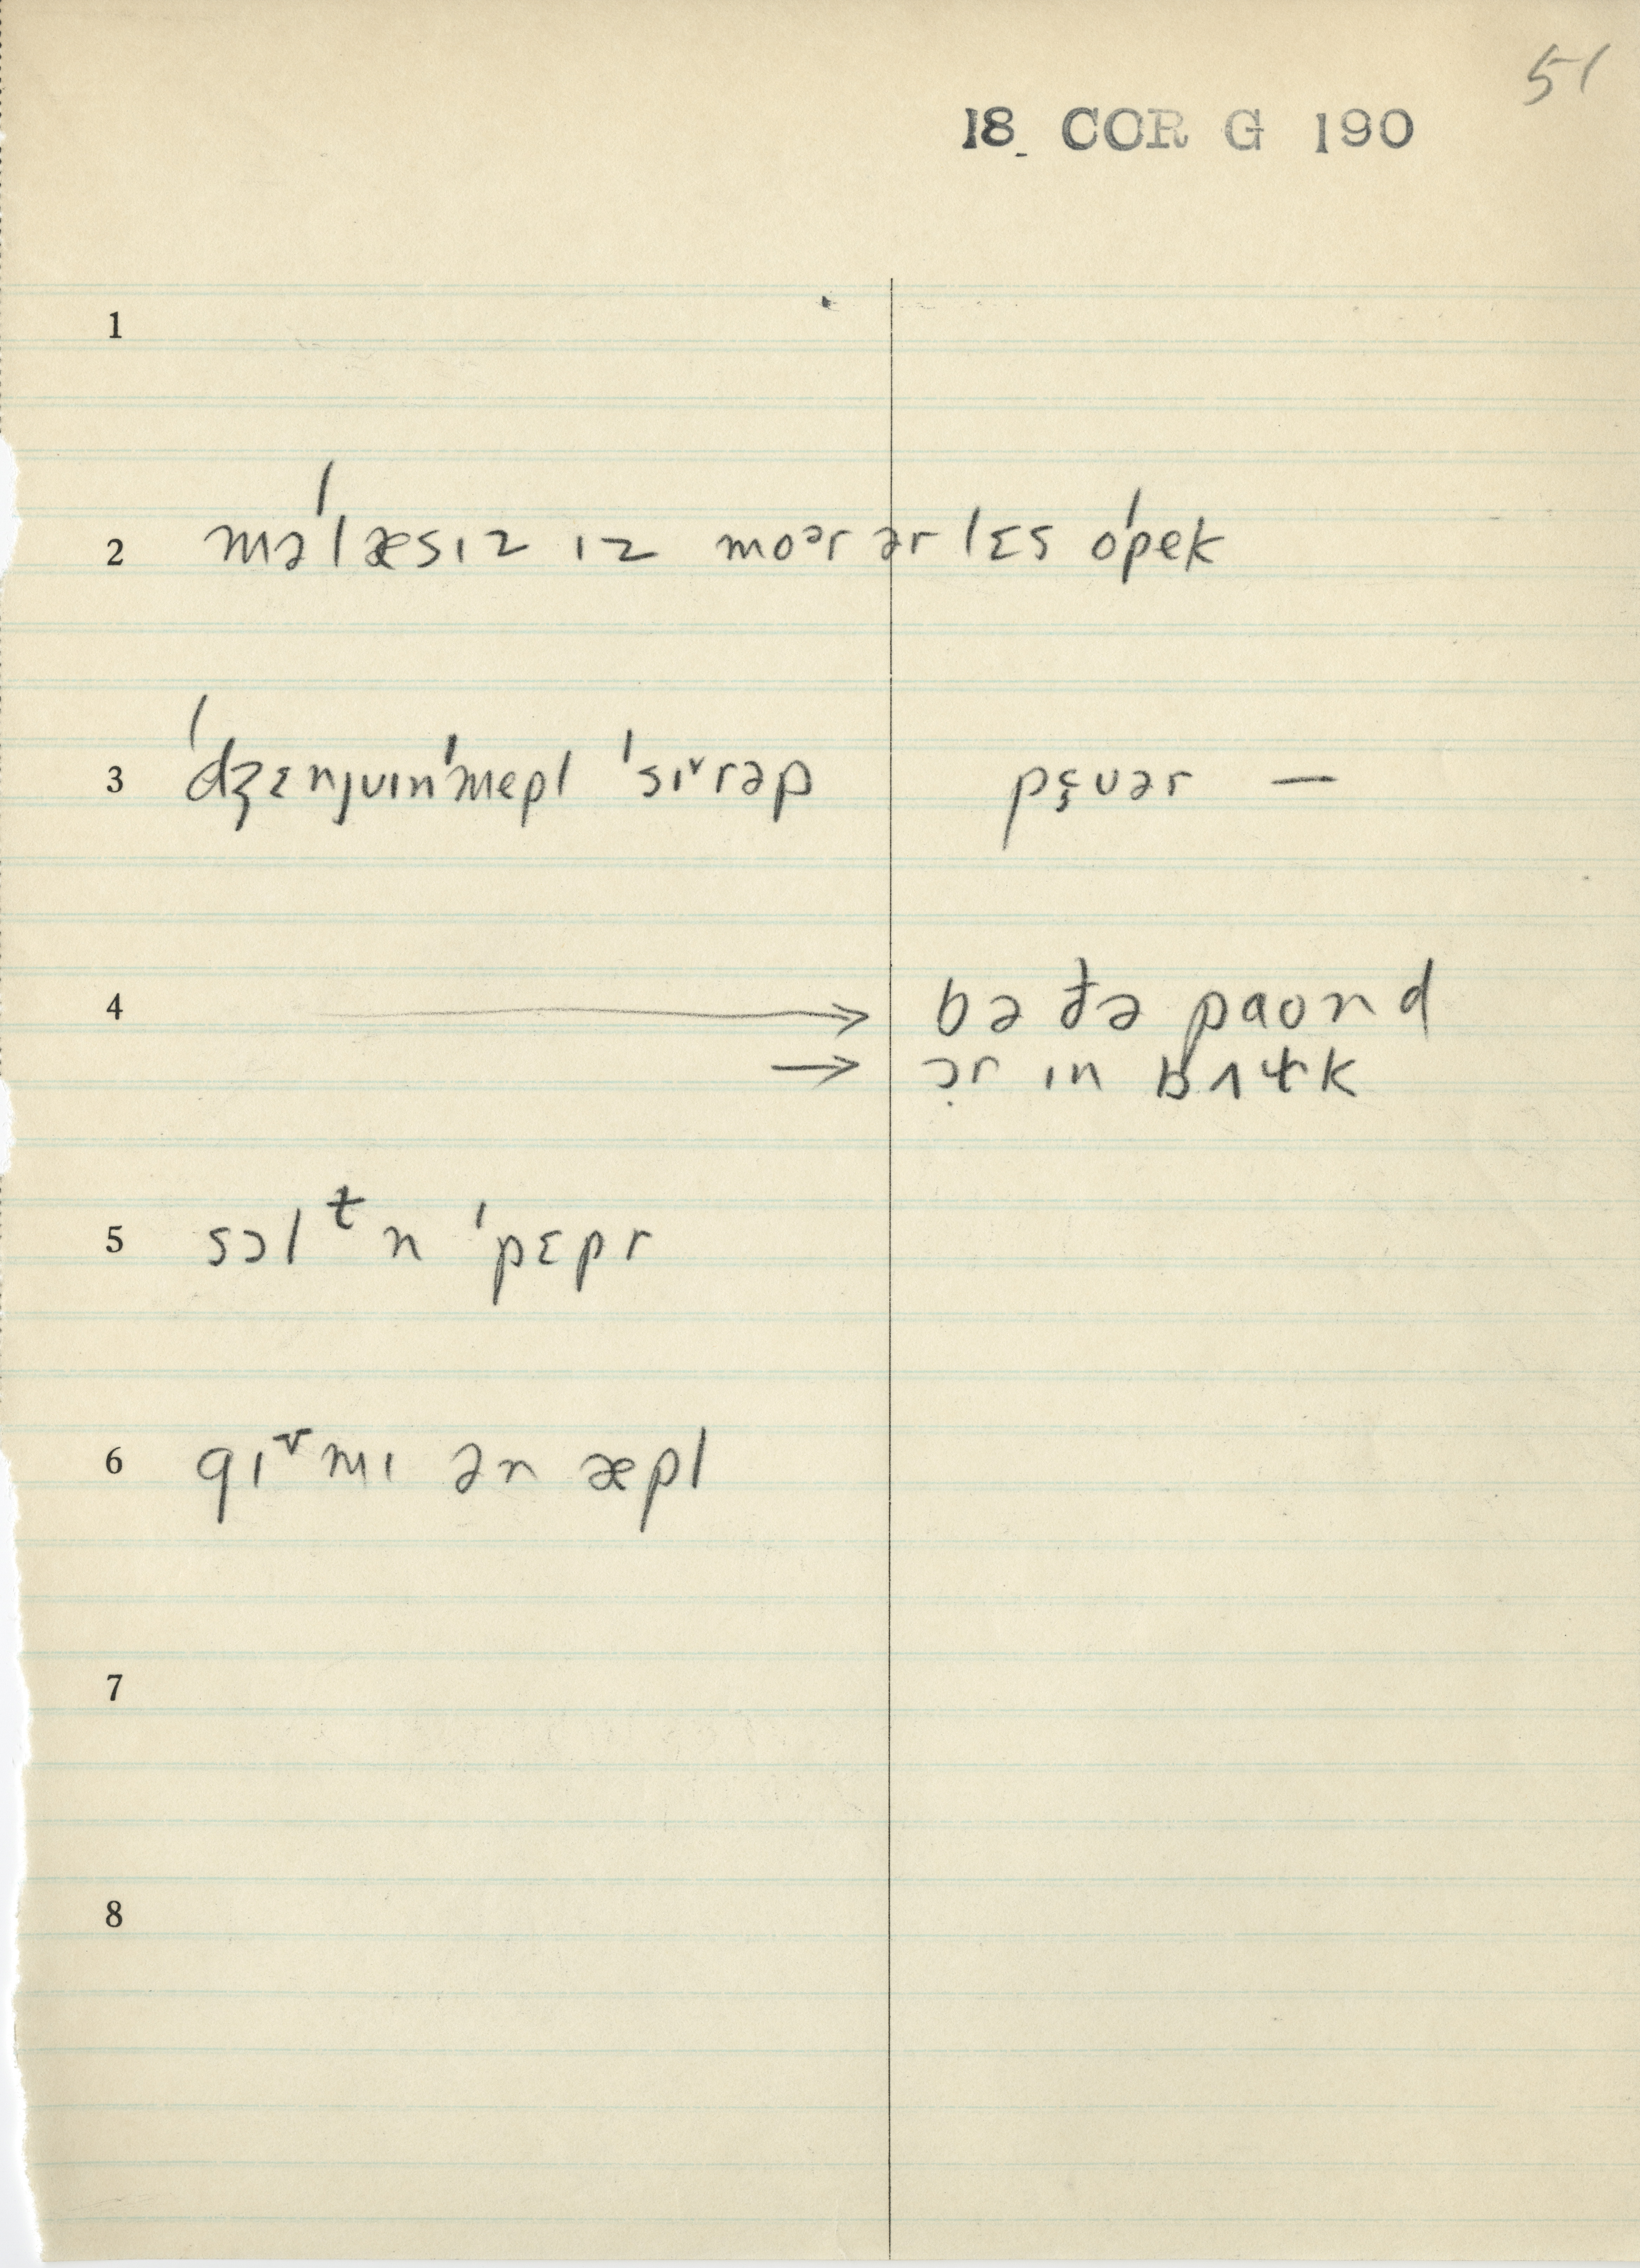 51
18 COR G 190
1
2 məˈlæsɪz ɪz moᵊr ər lɛs oˈpek
3 ˈdʒɛnjʊɪnˈmepl ˈsɪ˅rəp pɛ̨ʊər —
4 → bə ðə paʊnd
→ ɔ̣r ɪn bʌɫk
5 sɔlᵗn ˈpɛpr
6 gɪ˅mɪ ən æpl
7
8